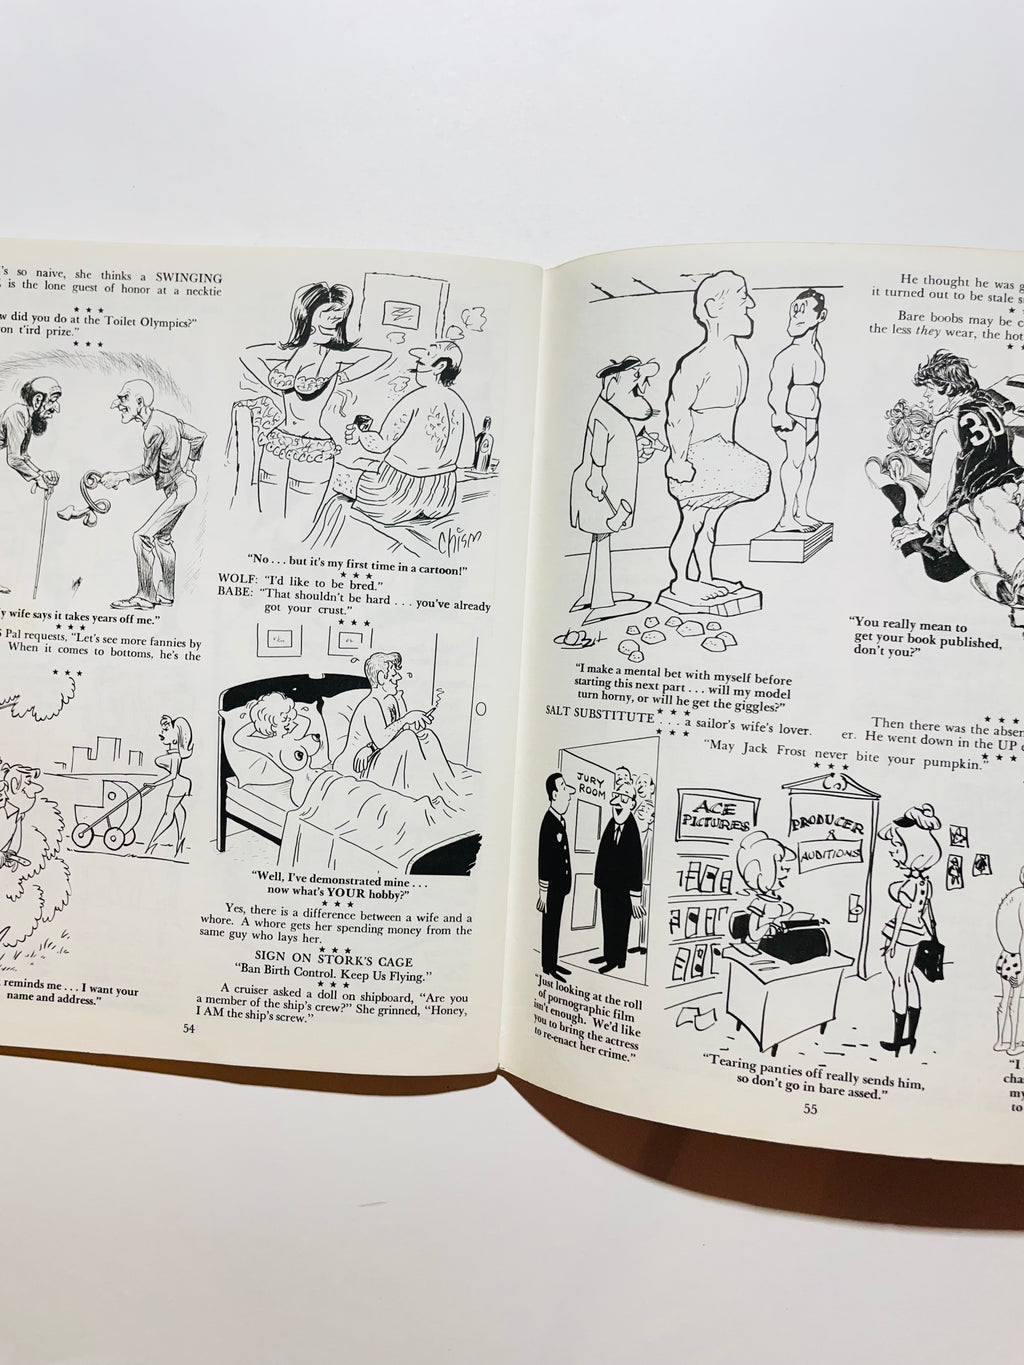 's so naive, she thinks a SWINGING
is the lone guest of honor at a necktie
★ ★ ★
w did you do at the Toilet Olympics?"
on t'ird prize."
★ ★ ★
y wife says it takes years off me."
★ ★ ★
Pal requests, "Let's see more fannies by
When it comes to bottoms, he's the
★ ★ ★
reminds me . . . I want your
name and address."
Chism
"No . . . but it's my first time in a cartoon!"
★ ★ ★
WOLF: "I'd like to be bred."
BABE: "That shouldn't be hard . . . you've already
got your crust."
★ ★ ★
"Well, I've demonstrated mine . . .
now what's YOUR hobby?"
★ ★ ★
Yes, there is a difference between a wife and a
whore. A whore gets her spending money from the
same guy who lays her.
★ ★ ★
SIGN ON STORK'S CAGE
"Ban Birth Control. Keep Us Flying."
★ ★ ★
A cruiser asked a doll on shipboard, "Are you
a member of the ship's crew?" She grinned, "Honey,
I AM the ship's screw."
54
"I make a mental bet with myself before
starting this next part . . . will my model
turn horny, or will he get the giggles?"
★ ★ ★
SALT SUBSTITUTE . . . a sailor's wife's lover.
★ ★ ★
He thought he was g
it turned out to be stale s
Bare boobs may be c
the less they wear, the hot
★ ★
30
"You really mean to
get your book published,
don't you?"
★ ★ ★
Then there was the absen
er. He went down in the UP
★ ★ ★
"May Jack Frost never bite your pumpkin."
★ ★ ★
JURY
ROOM
"Just looking at the roll
of pornographic film
isn't enough. We'd like
you to bring the actress
to re-enact her crime."
ACE
PICTURES
PRODUCER
&
AUDITIONS
"Tearing panties off really sends him,
so don't go in bare assed."
"I
cha
my
to
55